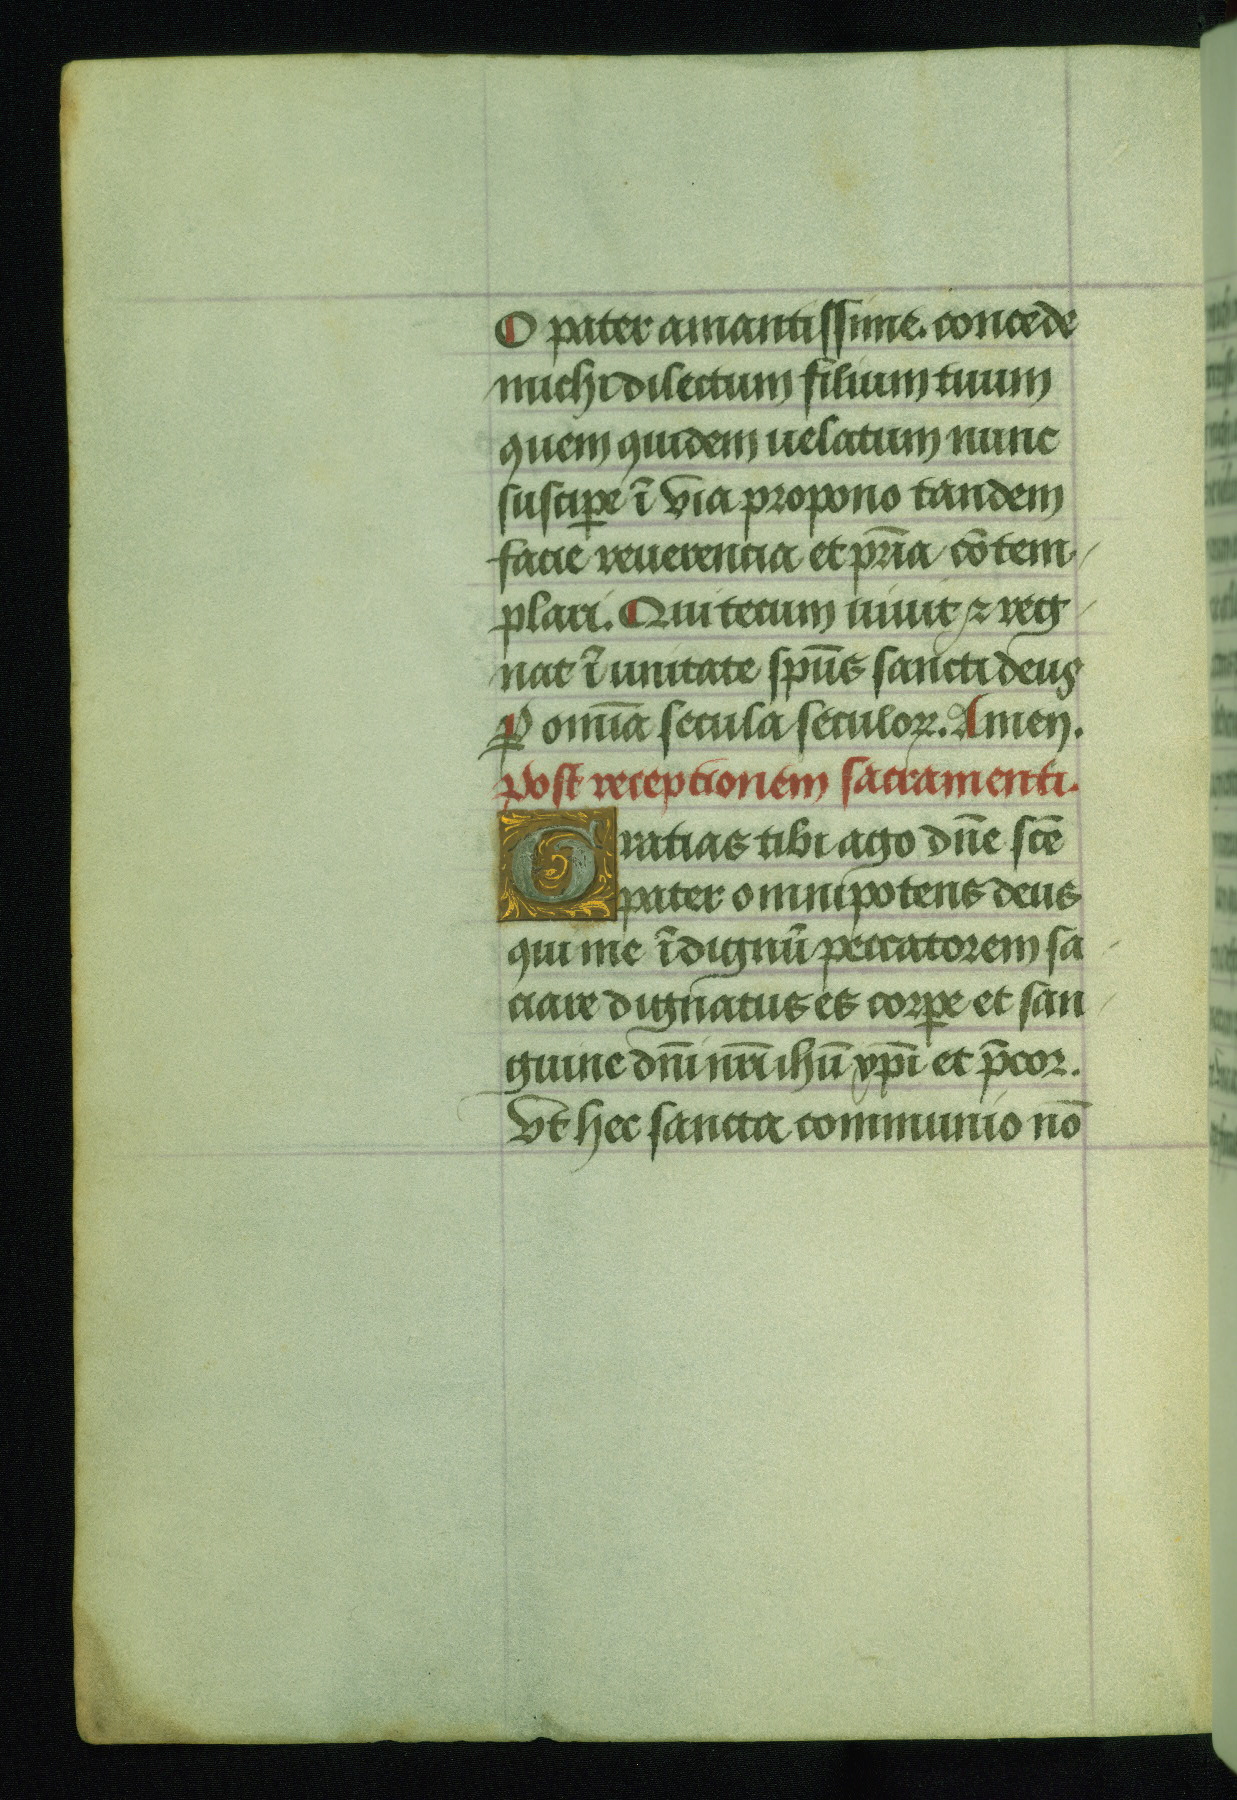 O pater amantissime. concede
michi dilectum filium tuum
quem quidem uelatum nunc
suscipe̲ ī v̄ia propono tandem
facie reuerencia et pr̄ia cōtem
plari. Qui tecum uiuit ⁊ reg
nat ī unitate sp̄us sancti deus
ꝑ om̄ia secula seculoꝝ. Amen.
Post receptionem sacramenti.
Gratias tibi ago dn̄e sc̄e
pater omnipotens deus
qui me īdignū peccatorem sa
ciare dignatus es corꝑe et san
guine dn̄i nr̄i ihū xp̄i et p̄cor.
Vt hec sancta communio nō